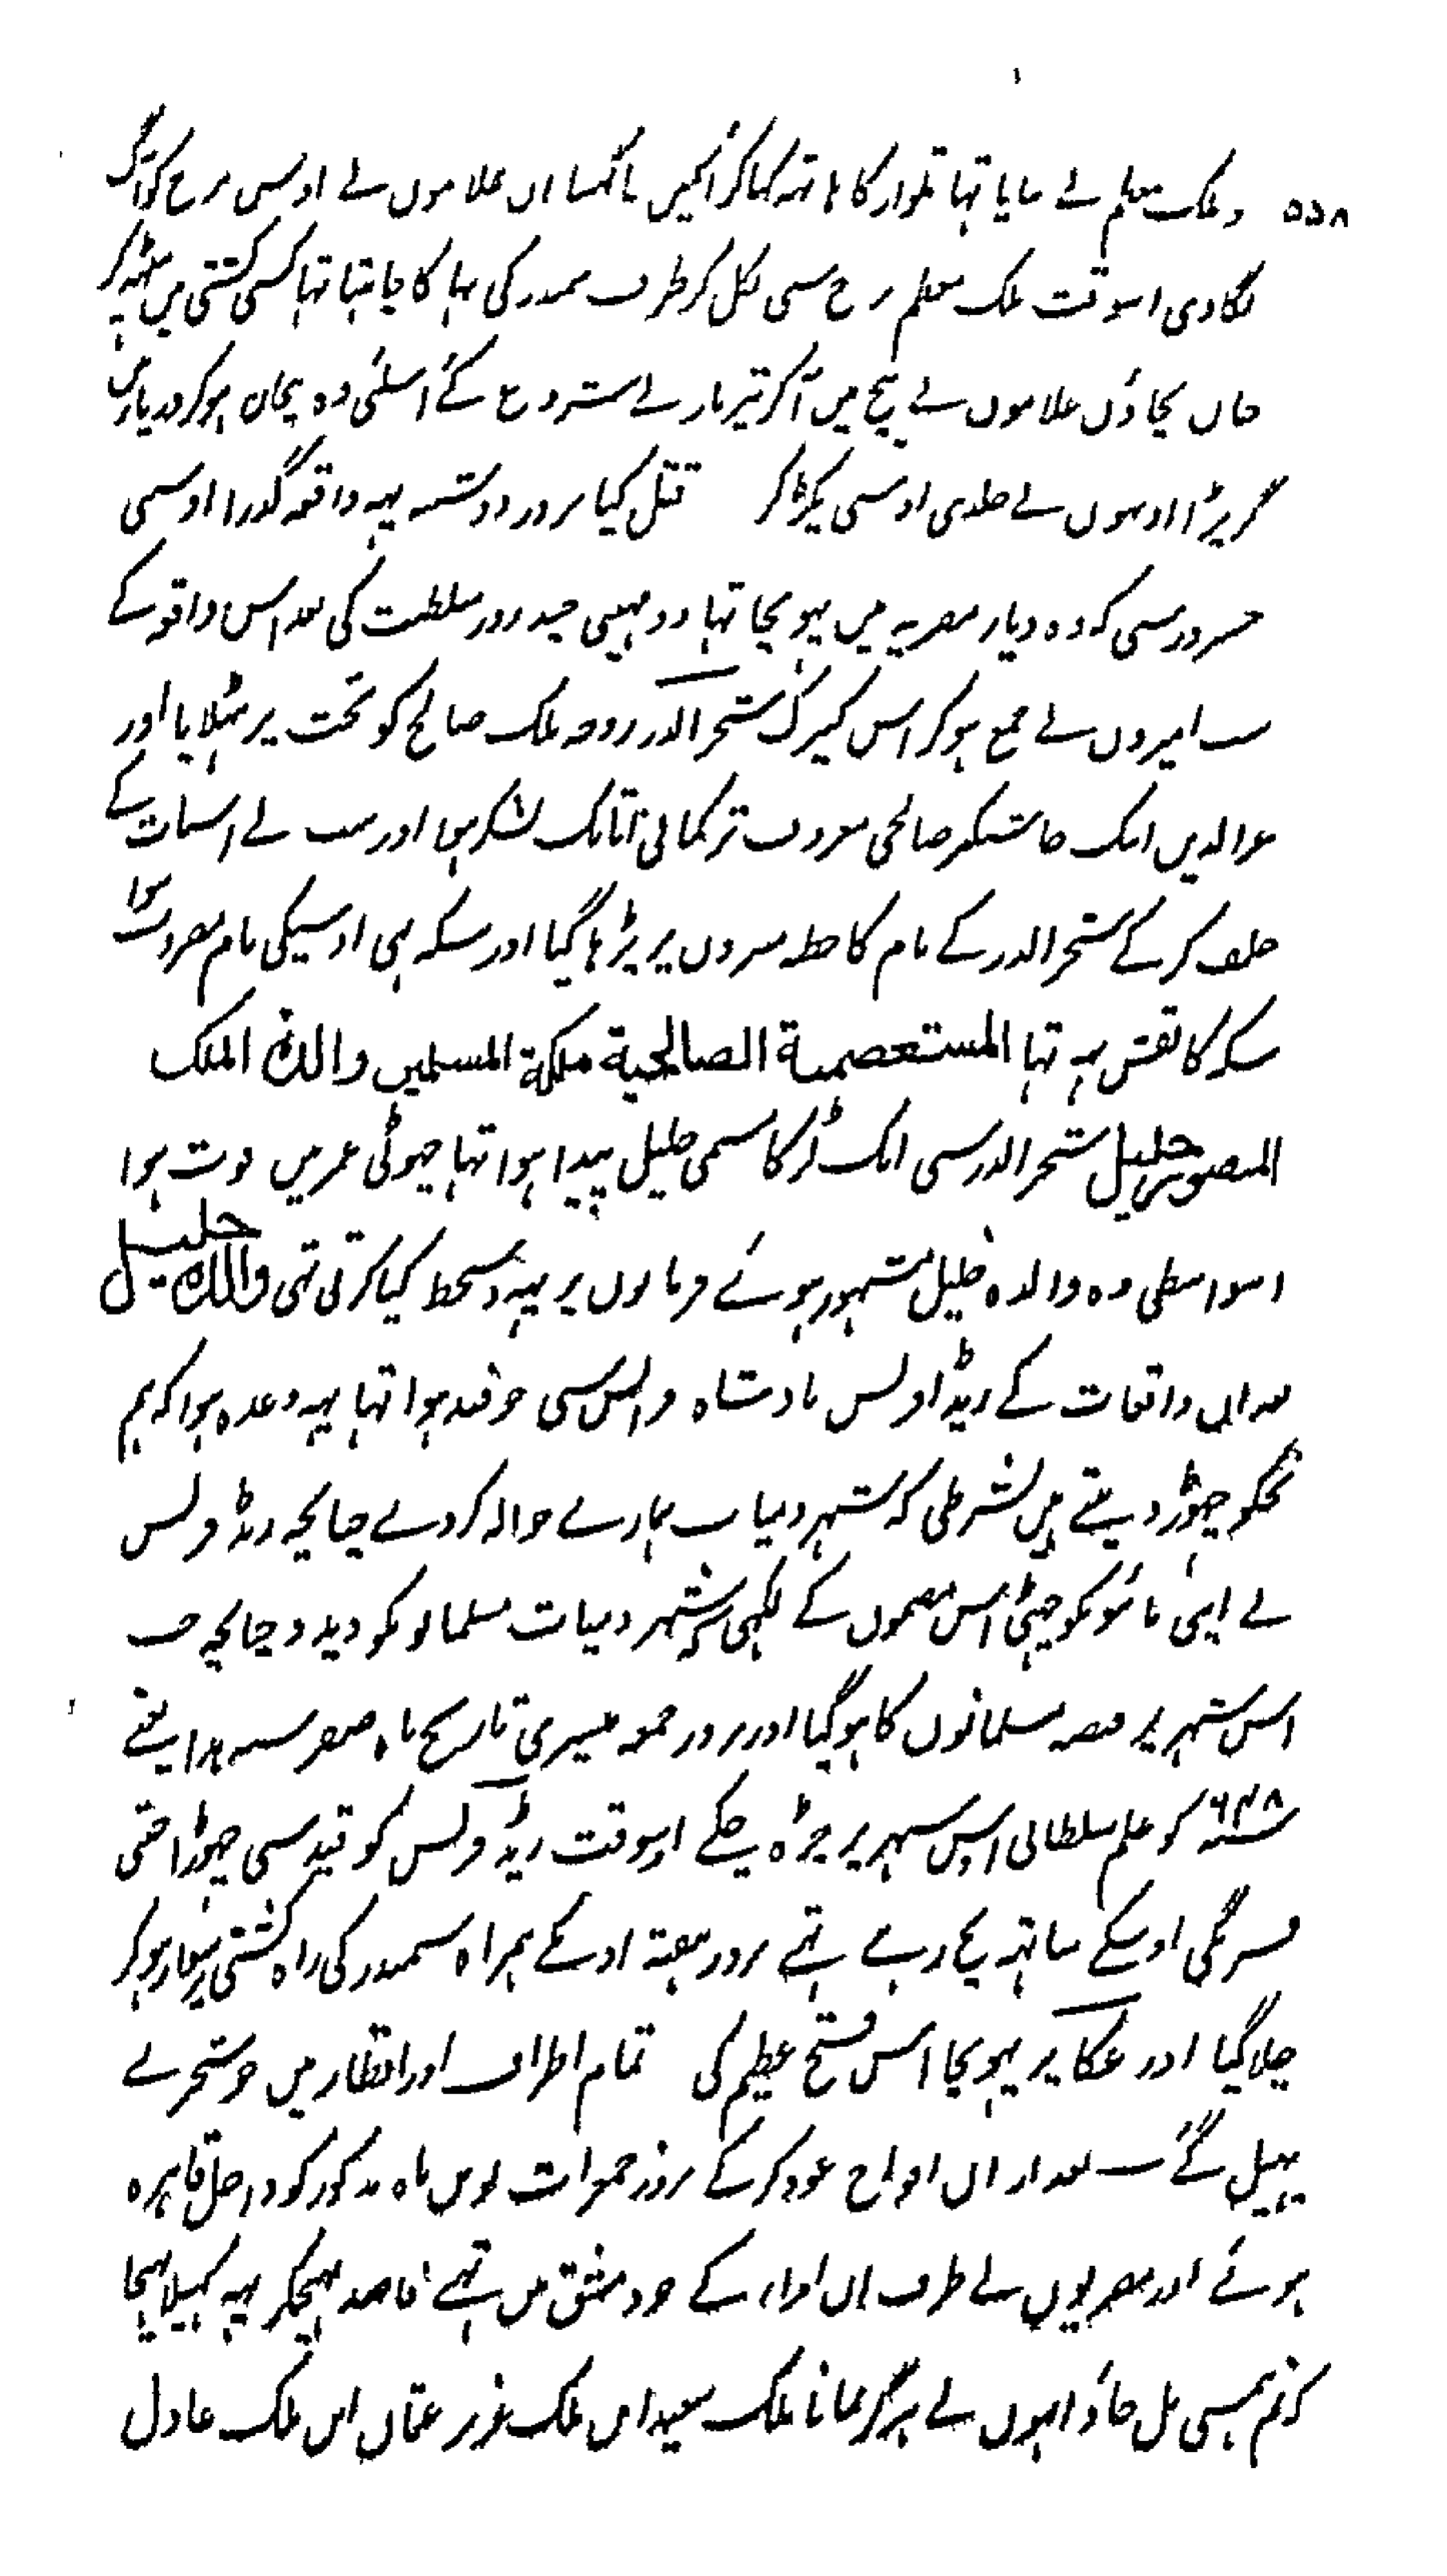 ۵۵۸ وملک معظم نے بنایا تہا تلوار کا ہاتہہ کہا کر انکیں جا گہسا ان غلاموں نے اوس برج کو آگ
لگادی اسوقت ملک معظم برج سی نکل کر طرف سمندر کی بہا گا جاتا تہا کسی کشتی میں بیٹہہ کر
جان بچاؤں غلاموں نے بیچ میں آکر تیر مارنے شروع کئے اسلئی وہ بیجان ہو کر دریا میں
گر پڑا اونہوں نے جلدی اوسی پکڑ کر قتل کیا بروز دوشنبہ یہہ واقعہ گذرا اوسی
جس روز سی کہ وہ دیار مصریہ میں پہونچا تہا دو مہینی چند روز سلطنت کی بعد اس واقعہ کے
سب امیروں نے جمع ہو کر اس کنیزک شجر الدر زوجہ ملک صالح کو تخت پر بٹہلایا اور
عز الدین ایبک جاشنکیر صالحی معروف ترکمانی اتابک لشکر ہوا اور سب نے اسبات کے
حلف کر کے شجر الدر کے نام کا خطبہ منبروں پر پڑہا گیا اور سکہ بہی اوسیکی نام مضروب ہوا
سکہ کا نقش یہہ تہا المستعصمیة الصالحیة ملکة المسلمین والدة الملک
المنصور خلیل شجر الدر سی ایک لڑکا مسمی خلیل پیدا ہوا تہا چہوٹی عمر میں فوت ہوا
اسواسطی وہ والدہ خلیل مشہور ہوئے فرمانوں پر یہہ دستخط کیا کرتی تہی والدة خلیل
بعد ان واقعات کے ریڈ افرنس بادشاہ فرانس سی جو قید ہوا تہا یہہ وعدہ ہوا کہ ہم
تجکو چہوڑ دیتے ہیں بشرطی کہ شہر دمیاط ہمارے حوالہ کردے چنانچہ ریڈ فرنس
نے اپنی نائبونکو چٹہی اس مضموں کے لکہی کہ شہر دمیاط مسلمانونکو دیدو چنانچہ جب
اس شہر پر قبضہ مسلمانوں کا ہوگیا اور بروز جمعہ تیسری تاریخ ماہ صفر سنہ ہذا یعنے
سنہ ۶۴۸ کو علم سلطانی اس شہر پر چڑہ چکے اوسوقت ریڈ فرنس کو قید سی چہوڑا جتنی
فرنگی اوسکے ساتہہ بچ رہے تہے بروز ہفتہ اونکے ہمراہ سمندر کی راہ کشتی پر سوار ہو کر
چلا گیا اور عکا پر پہونچا اس فتح عظیم کی تمام اطراف اور اقطار میں خوشخبرے
پہیل گئے بعد ازاں افواج عود کر کے بروز جمعرات نویں ماہ مذکور کو داخل قاہرہ
ہوئے اور مصریوں نے طرف ان امراء کے جو دمشق میں تہے قاصد بہیجکر یہہ کہلا بہیجا
کہ تم ہمسی مل جاؤ انہوں نے ہرگز نمانا ملک سعید ابن ملک عزیز عثمان ابن ملک عادل